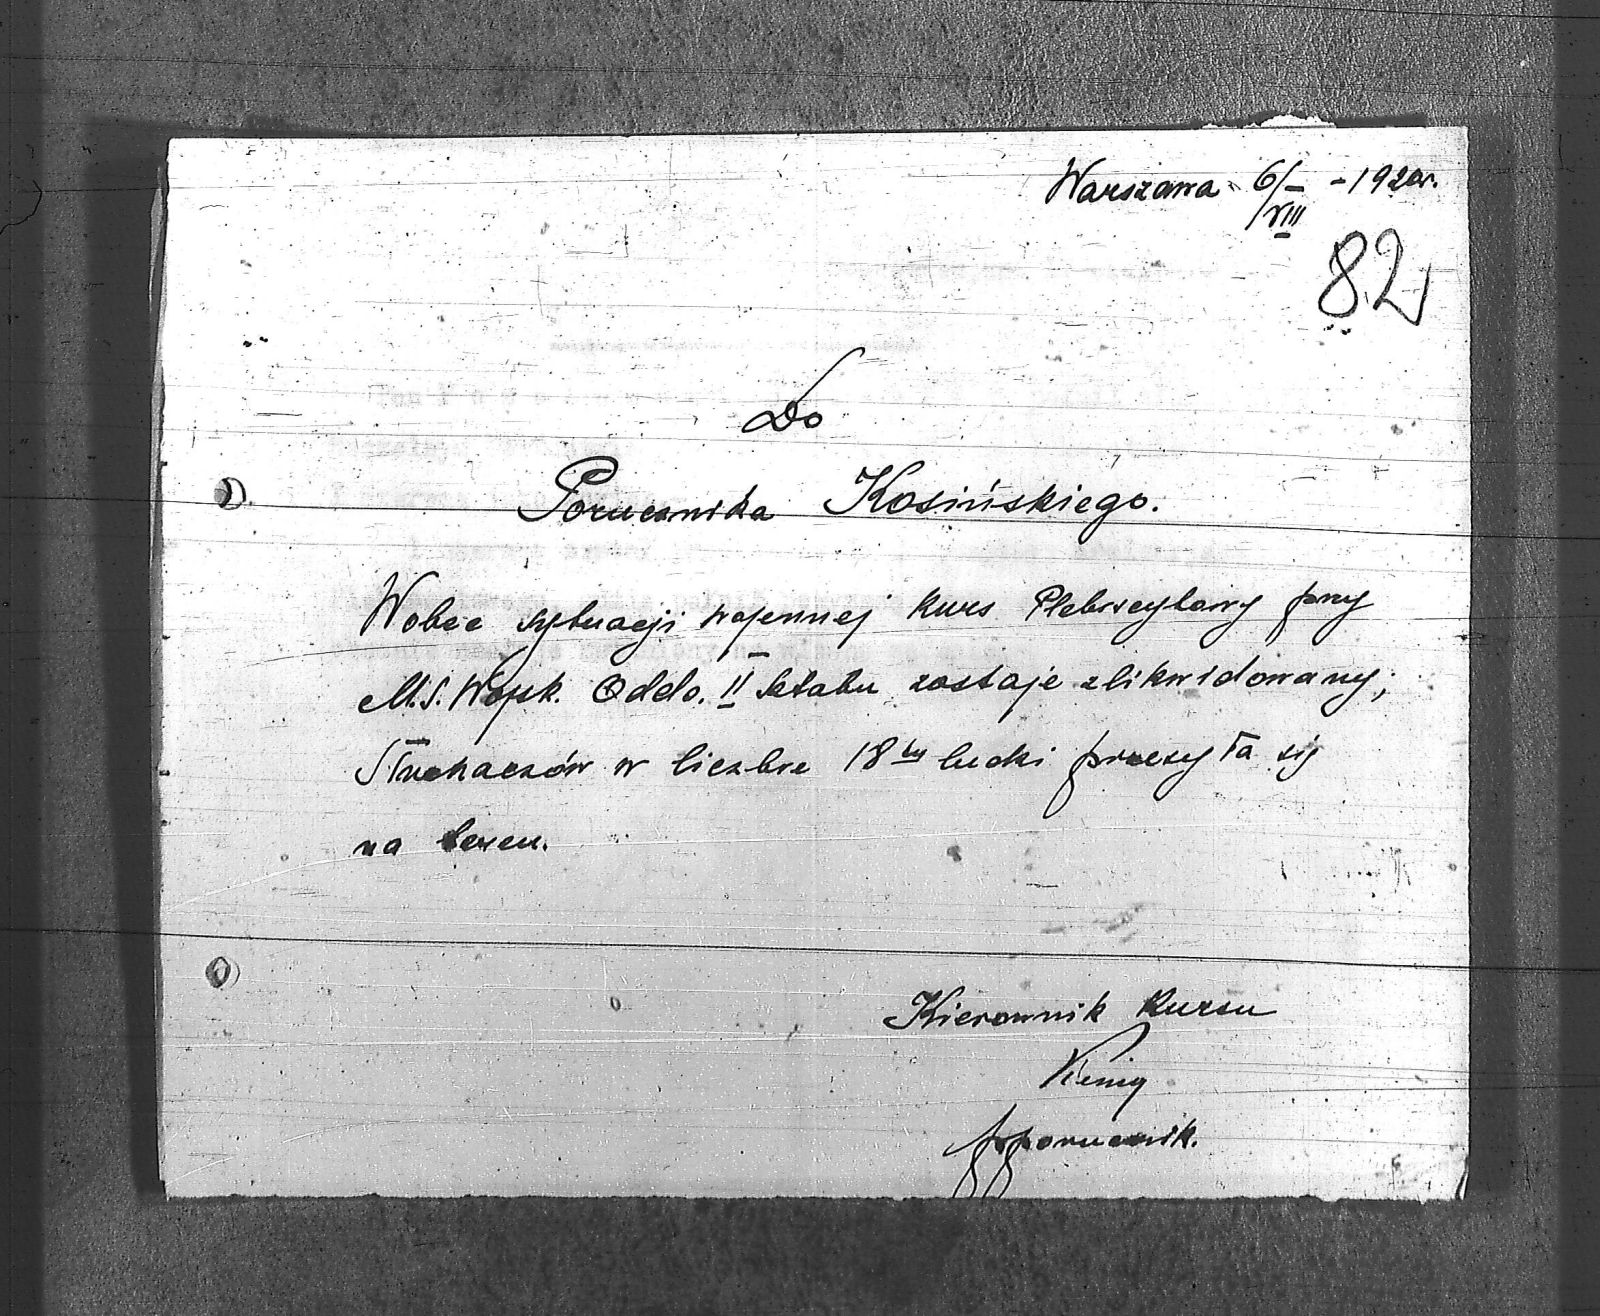 Warszawa 6/VIII - 1920r.
82
Do
Porucznika Kosińskiego.
Wobec sytuacji wojennej kurs Plebiscytowy przy
M.S. Wojsk. Oddz. II Sztabu zostaje zlikwidowany;
Słuchaczów w liczbie 18tu ludzi przesyła się
na teren.
Kierownik Kursu
ppporucznik.